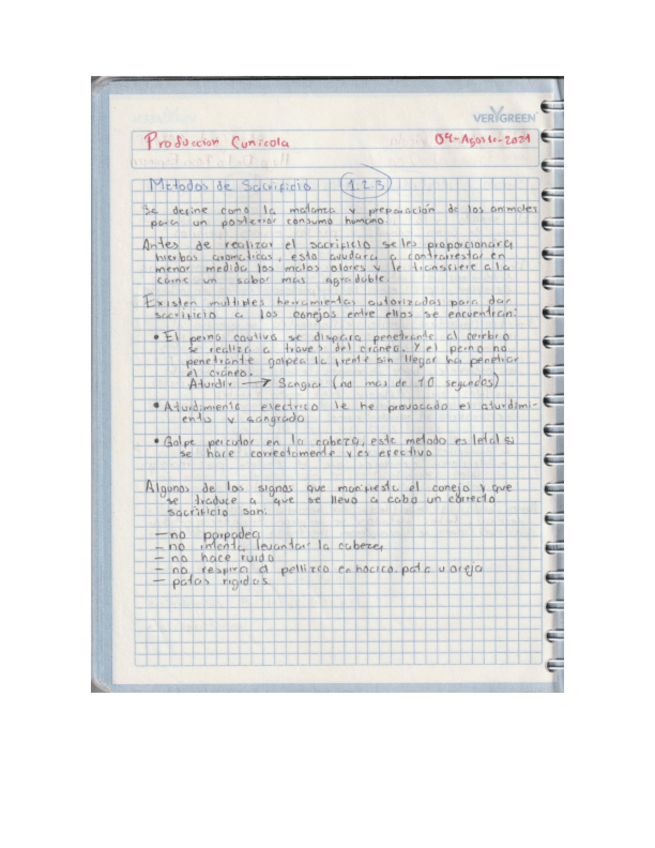 VERYGREEN
Produccion Cunicola 04-Agosto-2021
Metodos de Sacrificio 1.2.3
Se define como la matanza y preparación de los animales
para un posterior consumo humano.
Antes de realizar el sacrificio se les proporcionara
hierbas aromaticas, esto ayudara a contrarrestar en
menor medida los malos olores y le transfiere a la
carne un sabor mas agradable.
Existen multiples herramientas autorizadas para dar
sacrificio a los conejos entre ellos se encuentran:
• El perno cautivo se dispara penetrante al cerebro
se realiza a traves del craneo. Y el perno no
penetrante golpea la frente sin llegar ha penetrar
el craneo.
Aturdir → Sangrar (no mas de 10 segundos)
• Aturdimiento electrico le he provocado el aturdimi-
ento y sangrado
• Golpe en la cabeza, este metodo es letal si
se hace correctamente y es efectivo
Algunos de los signos que manifiesta el conejo y que
se traduce a que se llevo a cabo un correcto
sacrificio son:
— no parpadea
— no intenta levantar la cabeza
— no hace ruido
— no respira al pellizco en hocico, pata u oreja
— patas rigidas.